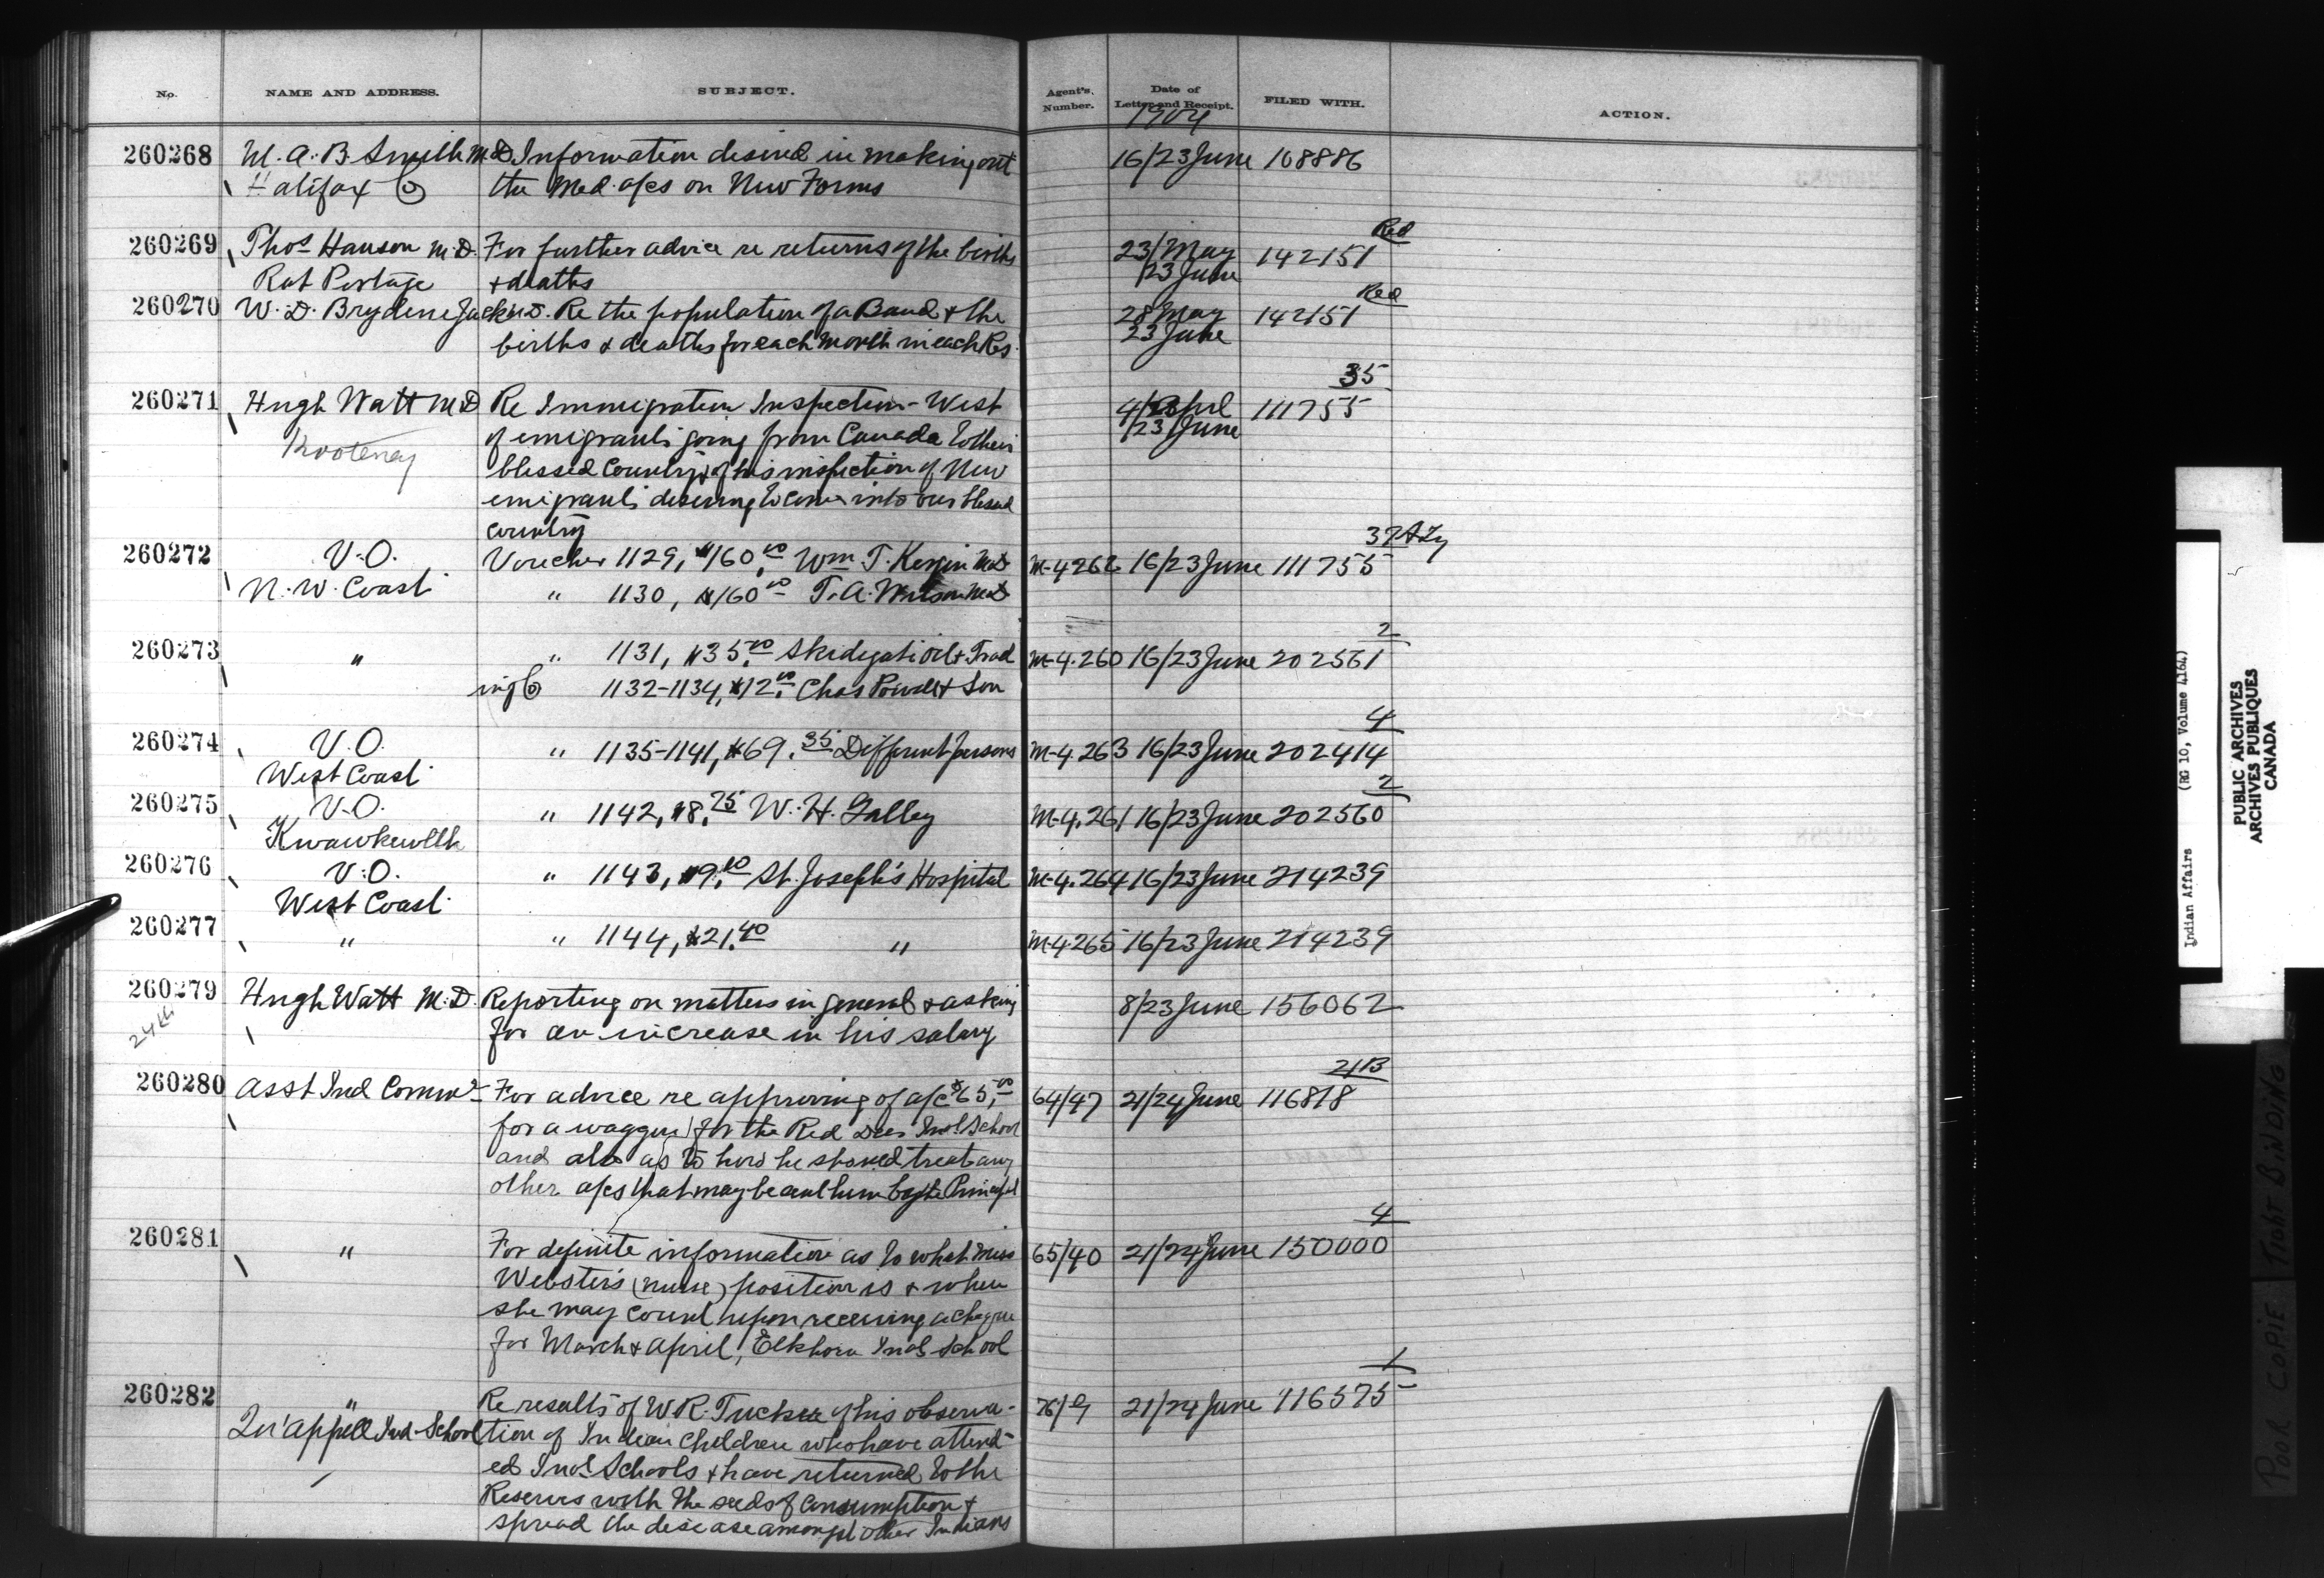 No. NAME AND ADDRESS. SUBJECT. Agent's Number. Date of Letter and Receipt. FILED WITH. ACTION.
1904
260268 M. A. B. Smith M.D. Information desired in making out 16/23 June 108886
Halifax Co the Med. a/cs on New Forms
Red
260269 Thos Hanson M.D. For further advice re returns of the births 23/May 142151
Rat Portage & deaths /23 June
Red
260270 W. D. Brydone Jack M.D. Re the population of a Band & the 28 May 142151
births & deaths for each month in each Res. 23 June
35
260271 Hugh Watt M.D Re Immigration Inspection - West 4/April 111755
Kootenay of emigrants going from Canada to their /23 June
blessed country & of his inspection of New
emigrants desiring to come into our blessed
country
37
260272 V.O. Voucher 1129, $160.00 Wm T. Kergin M.D M-4266 16/23 June 111755
N. W. Coast " 1130, $160.00 T. A. Wilson M.D
2
260273 " " 1131, $35.00 Skidegate Oil & Trad M-4.260 16/23 June 202561
ing Co 1132-1134, $12.00 Chas Powell & Son
4
260274 V.O. " 1135-1141, $69.35 Different persons M-4.263 16/23 June 202414
West Coast
2
260275 V.O. " 1142, $8.75 W. H. Galley M-4.261 16/23 June 202560
Kwawkewlth
260276 V.O. " 1143, $9.10 St. Joseph's Hospital M-4.264 16/23 June 214239
West Coast
260277 " " 1144, $21.40 " M-4265 16/23 June 214239
260279 Hugh Watt M.D. Reporting on matters in general & asking 8/23 June 156062
24th for an increase in his salary
21B
260280 Asst Ind Commr For advice re approving of a/c $65.00 64/47 21/24 June 116818
for a waggon for the Red Deer Indl School
and also as to how he should treat any
other a/cs that may be sent him by the Principal
4
260281 " For definite information as to what Miss 65/40 21/24 June 150000
Webster's (nurse) position is & when
she may count upon receiving a cheque
for March & April, Elkhorn Indl School
1
260282 " Re results of W R. Tucker of his observa- 76/9 21/24 June 116575
Qu'appelle Ind. School tion of Indian children who have attend-
ed Indl Schools & have returned to the
Reserves with the seeds of consumption &
spread the disease amongst other Indians
Indian Affairs (RG 10, Volume 4164)
PUBLIC ARCHIVES
ARCHIVES PUBLIQUES
CANADA
POOR COPIE TIGHT BINDING